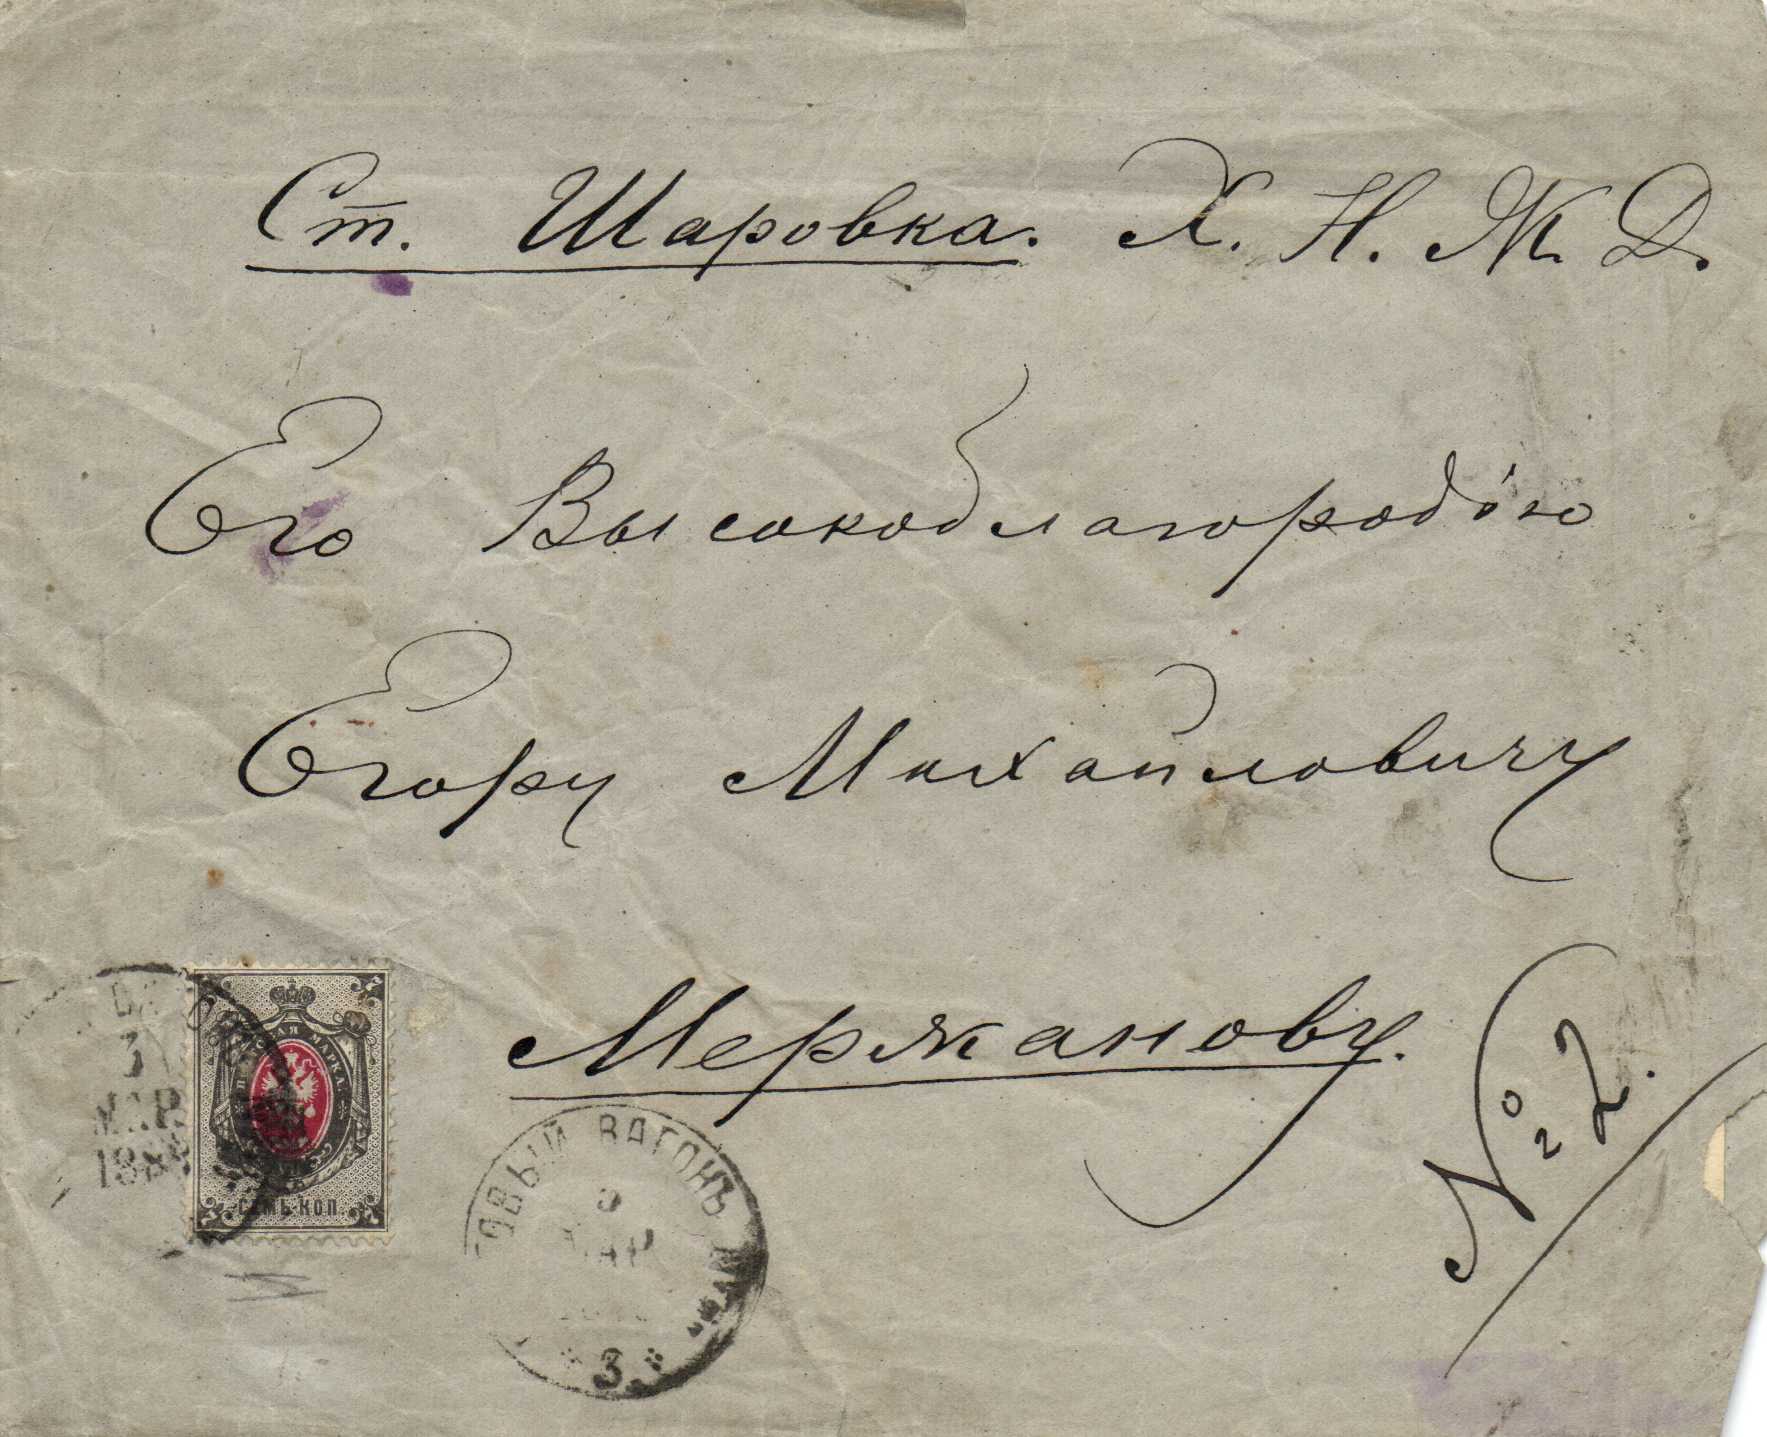 Ст. Шаровка. Х. Н. Ж. Д.
Его Высокоблагородію
Егору Михайловичу
Мержанову.
№ 2.
3
МАР
188
МАРКА
СЕМЬ КОП.
7 7
ОВЫЙ ВАГОНЪ
МАР
3